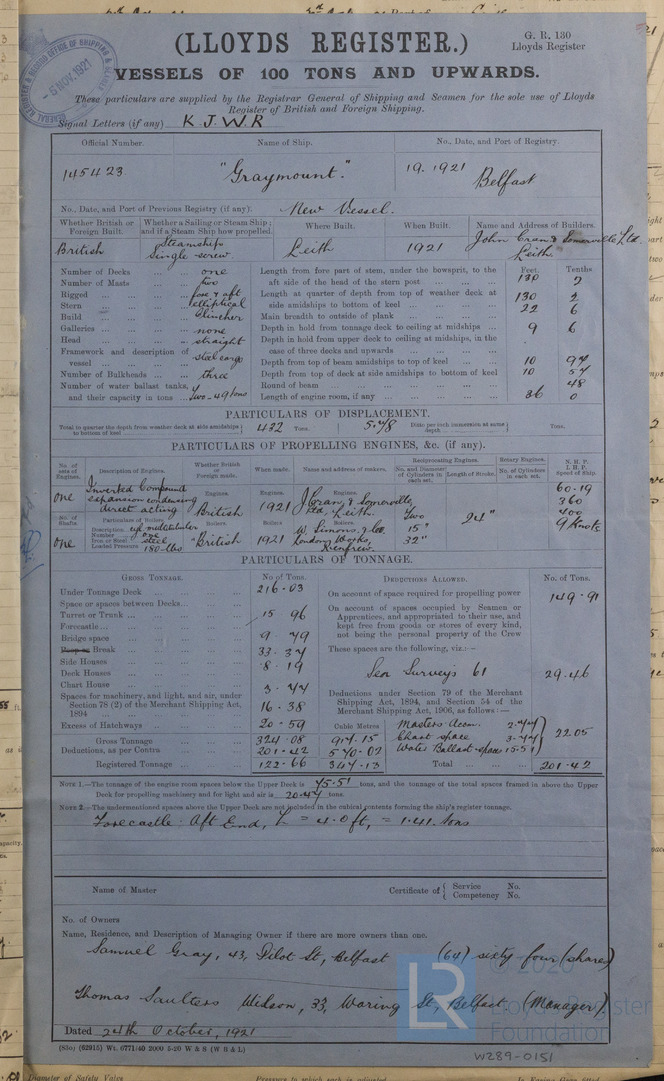 (LLOYDS REGISTER.)
G. R. 130
Lloyds Register
VESSELS OF 100 TONS AND UPWARDS.
GENERAL REGISTER & RECORD OFFICE OF SHIPPING & SEAMEN
- 5 NOV. 1921
These particulars are supplied by the Registrar General of Shipping and Seamen for the sole use of Lloyds
Register of British and Foreign Shipping.
Signal Letters (if any) K J W R
Official Number. Name of Ship. No., Date, and Port of Registry.
145423. "Graymount." 19. 1921 Belfast
No., Date, and Port of Previous Registry (if any). New Vessel.
Whether British or Foreign Built. Whether a Sailing or Steam Ship; and if a Steam Ship how propelled. Where Built. When Built. Name and Address of Builders.
British Steamship Single screw Leith 1921 John Cran & Somerville Ltd. Leith
Number of Decks one
Number of Masts two
Rigged fore & aft
Stern elliptical
Build Clincher
Galleries none
Head straight
Framework and description of vessel steel cargo
Number of Bulkheads three
Number of water ballast tanks, and their capacity in tons Two - 49 tons
Feet. Tenths
Length from fore part of stem, under the bowsprit, to the
aft side of the head of the stern post 130 2
Length at quarter of depth from top of weather deck at
side amidships to bottom of keel 130 2
Main breadth to outside of plank 22 6
Depth in hold from tonnage deck to ceiling at midships 9 6
Depth in hold from upper deck to ceiling at midships, in the
case of three decks and upwards
Depth from top of beam amidships to top of keel 10 97
Depth from top of deck at side amidships to bottom of keel 10 57
Round of beam 48
Length of engine room, if any 36 0
PARTICULARS OF DISPLACEMENT.
Total to quarter the depth from weather deck at side amidships to bottom of keel 432 Tons. 5.78 Ditto per inch immersion at same depth Tons.
PARTICULARS OF PROPELLING ENGINES, &c. (if any).
No. of sets of Engines. Description of Engines. Whether British or Foreign made. When made. Name and address of makers. Reciprocating Engines. No. and Diameter of Cylinders in each set. Length of Stroke. Rotary Engines. No. of Cylinders in each set. N.H.P. I.H.P. Speed of Ship.
one Inverted Compound expansion condensing direct acting Engines. British Engines. 1921 Engines. J Cran, & Somerville Ltd, Leith. Two 15" 32" 24" 60.19 360 400 9 Knots
No. of Shafts. Particulars of Boilers. Boilers. Boilers. Boilers.
one Description cyl multitubular
Number one
Iron or Steel steel
Loaded Pressure 180-lbs
British 1921 W. Simons & Co. London Works, Renfrew.
PARTICULARS OF TONNAGE.
GROSS TONNAGE. No of Tons.
Under Tonnage Deck 216.03
Space or spaces between Decks
Turret or Trunk 15 96
Forecastle
Bridge space 9 79
Break 33.37
Side Houses 8.19
Deck Houses
Chart House 3.77
Spaces for machinery, and light, and air, under
Section 78 (2) of the Merchant Shipping Act,
1894 16.38
Excess of Hatchways 20.59
Cubic Metres
Gross Tonnage 324.08 917.15
Deductions, as per Contra 201.42 570.02
Registered Tonnage 122.66 347.13
DEDUCTIONS ALLOWED. No. of Tons.
On account of space required for propelling power 149.91
On account of spaces occupied by Seamen or
Apprentices, and appropriated to their use, and
kept free from goods or stores of every kind,
not being the personal property of the Crew
These spaces are the following, viz.:—
See Surveys 61 29.46
Deductions under Section 79 of the Merchant
Shipping Act, 1894, and Section 54 of the
Merchant Shipping Act, 1906, as follows:—
Masters accom.
Chart space 3.77
Water Ballast space 15.51
22.05
Total 201.42
NOTE 1.—The tonnage of the engine room spaces below the Upper Deck is 75.51 tons, and the tonnage of the total spaces framed in above the Upper
Deck for propelling machinery and for light and air is 20.47 tons.
NOTE 2.—The undermentioned spaces above the Upper Deck are not included in the cubical contents forming the ship's register tonnage.
Forecastle: Aft End, L = 4.0 ft, = 1.41 tons
Name of Master Certificate of Service No.
Competency No.
No. of Owners
Name, Residence, and Description of Managing Owner if there are more owners than one.
Samuel Gray, 43, Pilot St, Belfast (64) sixty four (shares)
Thomas Saulters Wilson, 33, Waring St, Belfast (Manager)
Dated 24th October, 1921
(83o) (62915) Wt. 6771/40 2000 5-20 W & S (W B & L)
LR © 2020
Lloyd's Register
Foundation
W289-0151
Diameter of Safety Valve